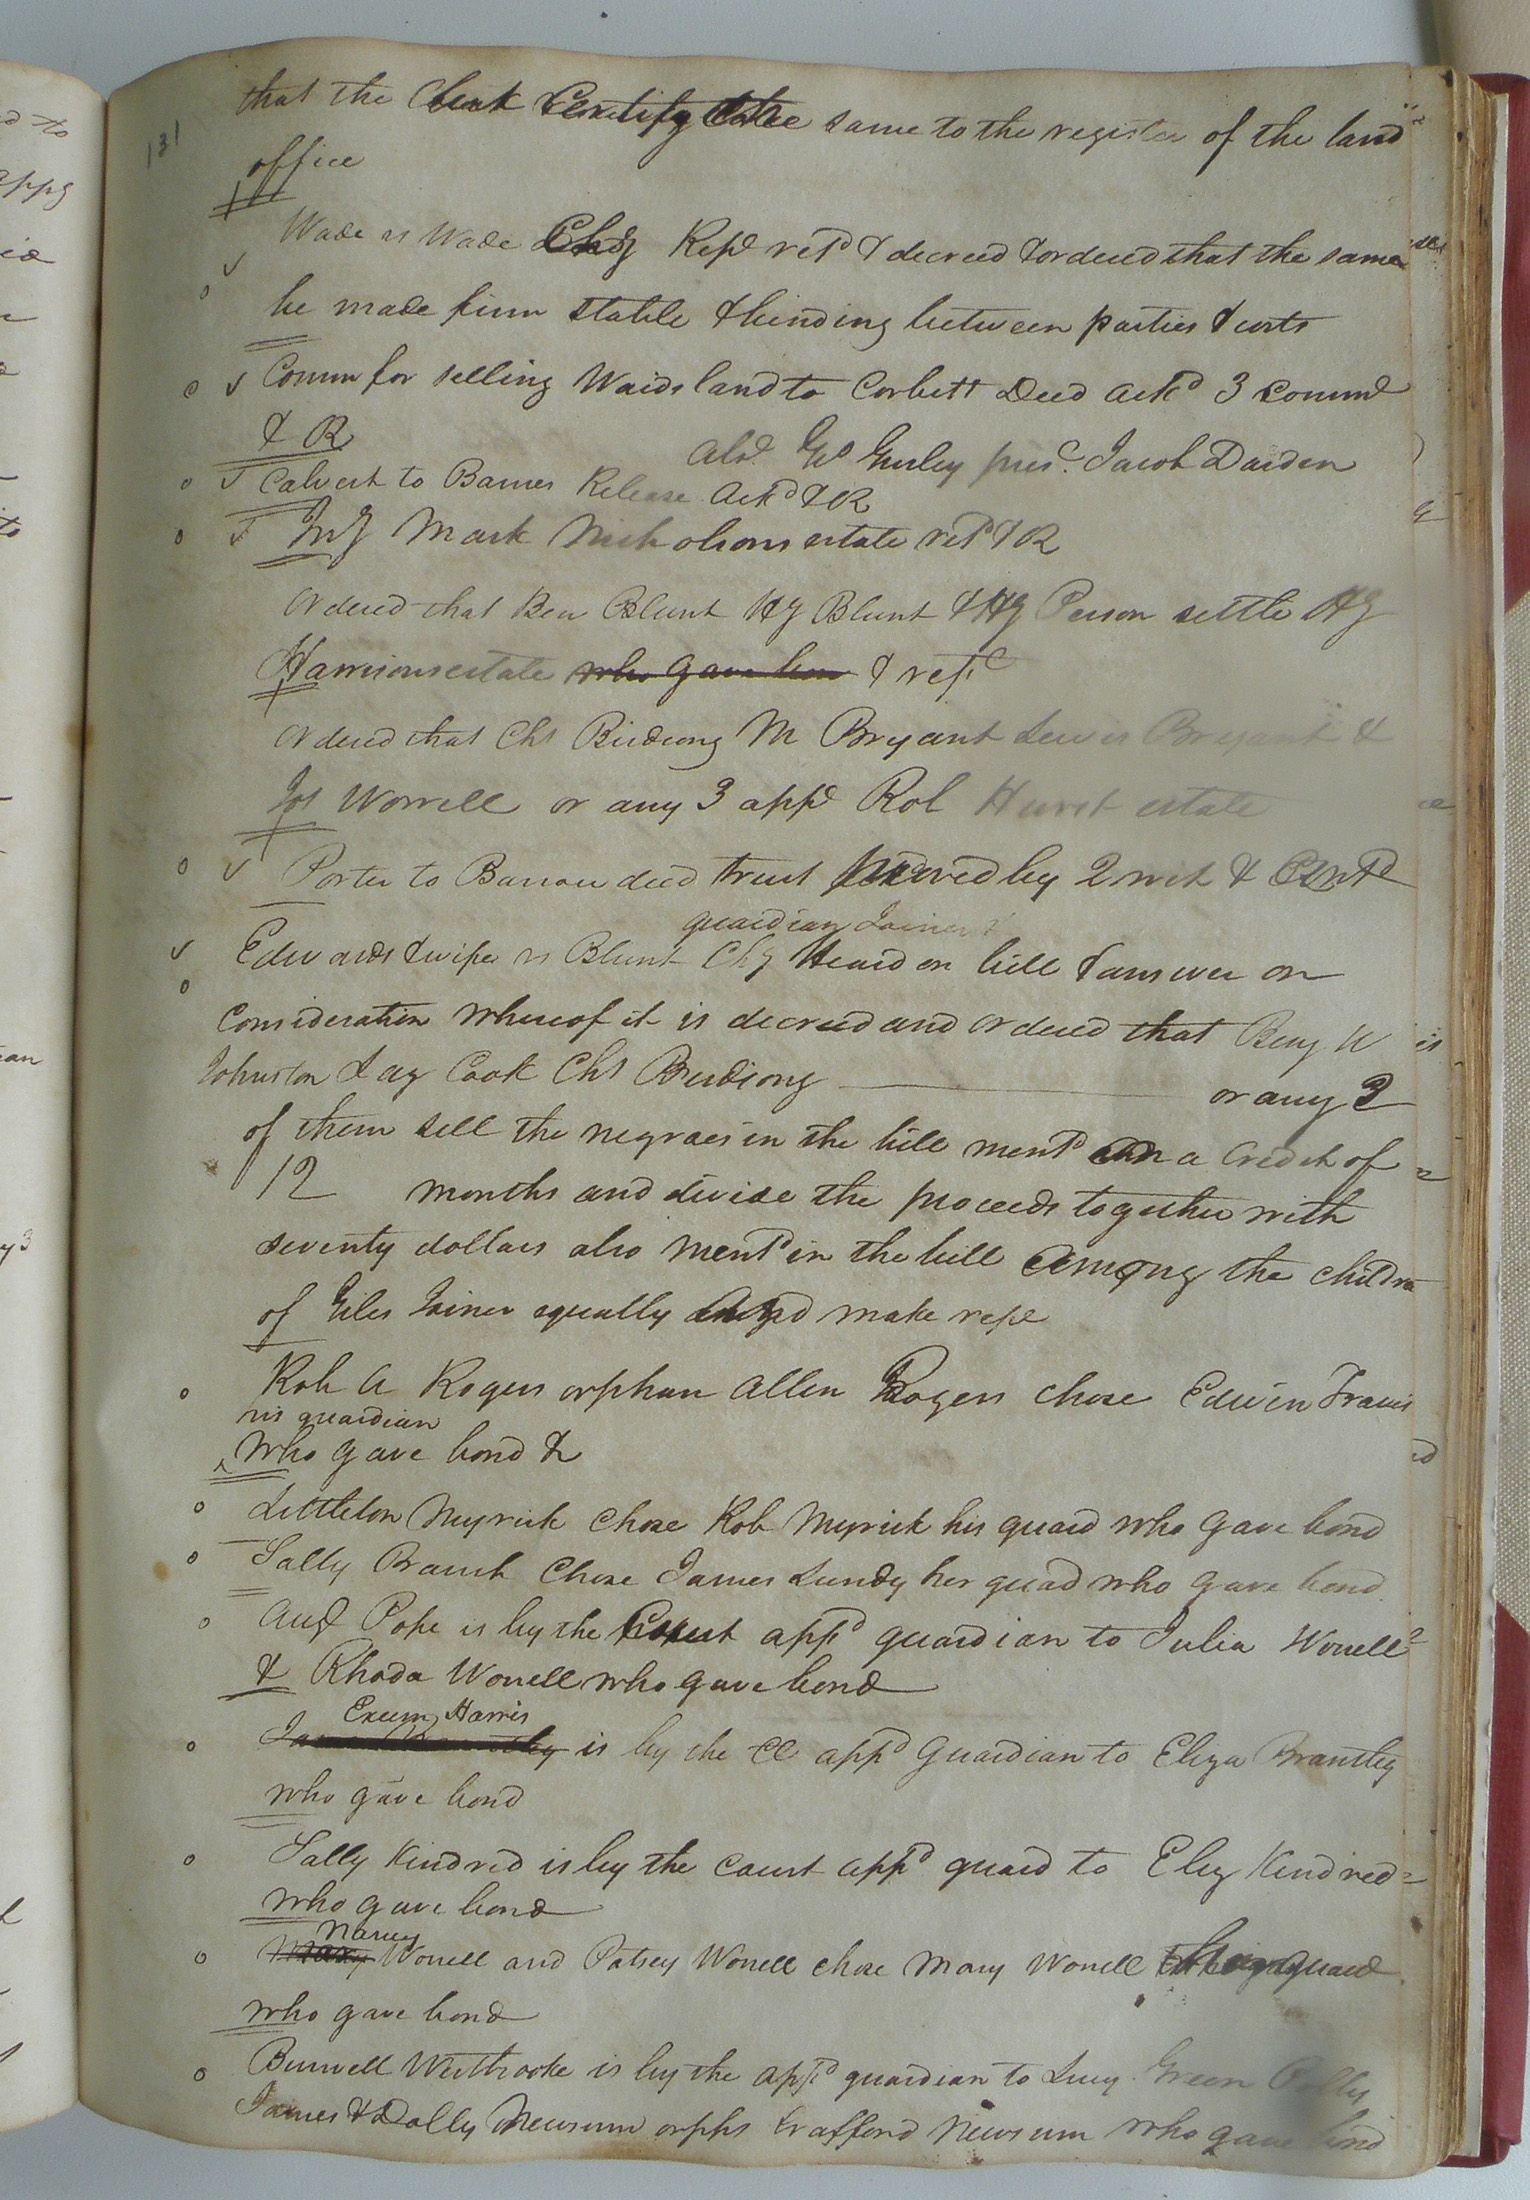 131
that the Clerk Certify the same to the register of the land
office
Wade vs Wade Chy Repd retd & decreed & ordered that the same
be made firm stable & binding between parties & costs
Comm for selling Waids land to Corbett Deed ackd 3 Commd
& R
absd Go Gurley presc. Jacob Darden
Calvert to Barnes Release ackd & R
Invy Mark Nicholsons estate retd & R
Ordered that Ben Blunt Hy Blunt & Hy Person settle Hy
Harrisons estate who gave bon & repc
Ordered that Chs Birdsong M Bryant Lewis Bryant &
Jos Worrell or any 3 appe Rob Hurst estate
Porter to Barrow deed trust proved by 2 wit & Contd
guardian Joiner
Edwards & wife vs Blunt Chy Heard on bill & answer on
Consideration whereof it is decreed and ordered that Benj W
Johnston Lay Cook Chs Birdsong or any 3
of them sell the negroes in the bill mentd on a Credit of
12 months and divide the proceeds together with
seventy dollars also mentd in the bill among the childrn
of Giles Joiner equally and make repe
Rob A Rogers orphan Allen Rogers chose Edwin Travis
his guardian
who gave bond &
Littleton Myrick chose Rob Myrick his guard who gave bond
Sally Branch Chose James Lundy her guad who gave bond
Aug Pope is by the Court appd guardian to Julia Worrell
& Rhoda Worrell who gave bond
Exum Harris
is by the CC appd Guardian to Eliza Brantley
who gave bond
Sally Kindred is by the Court appd guard to Eliz Kindred
who gave bond
Nancy
Mary Worrell and Patsey Worrell chose Mary Worrell guard
who gave bond
Burwell Westbrooke is by the appd guardian to Lucy Green Polly
James & Dolly Newsum orphs Crafford Newsum who gave bond